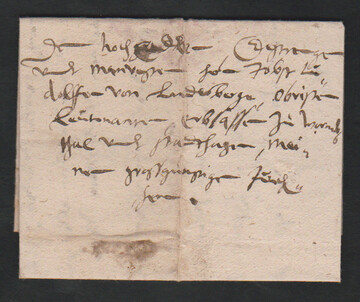 Dem hoch Edlen Gestrengen
undt Manvesten hern Jobst Lu
dolffen von Landesberge Obristen
Leutenanten Erbsassen zu Worms
thal undt Stadthagen, mei„
nem grossgünstigen Jun„
hern.